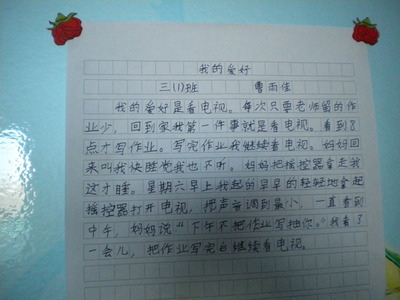 我的爱好
三(1)班 曹雨佳
我的爱好是看电视。每次只要老师留的作
业少，回到家我第一件事就是看电视。看到8
点才写作业。写完作业我继续看电视。妈妈回
来叫我快睡觉我也不听。妈妈把摇控器拿走我
这才睡。星期六早上我起的早早的轻轻地拿起
摇控器打开电视，把声音调到最小，一直看到
中午，妈妈说“下午不把作业写抽你。”我看了
一会儿，把作业写完自继续看电视。